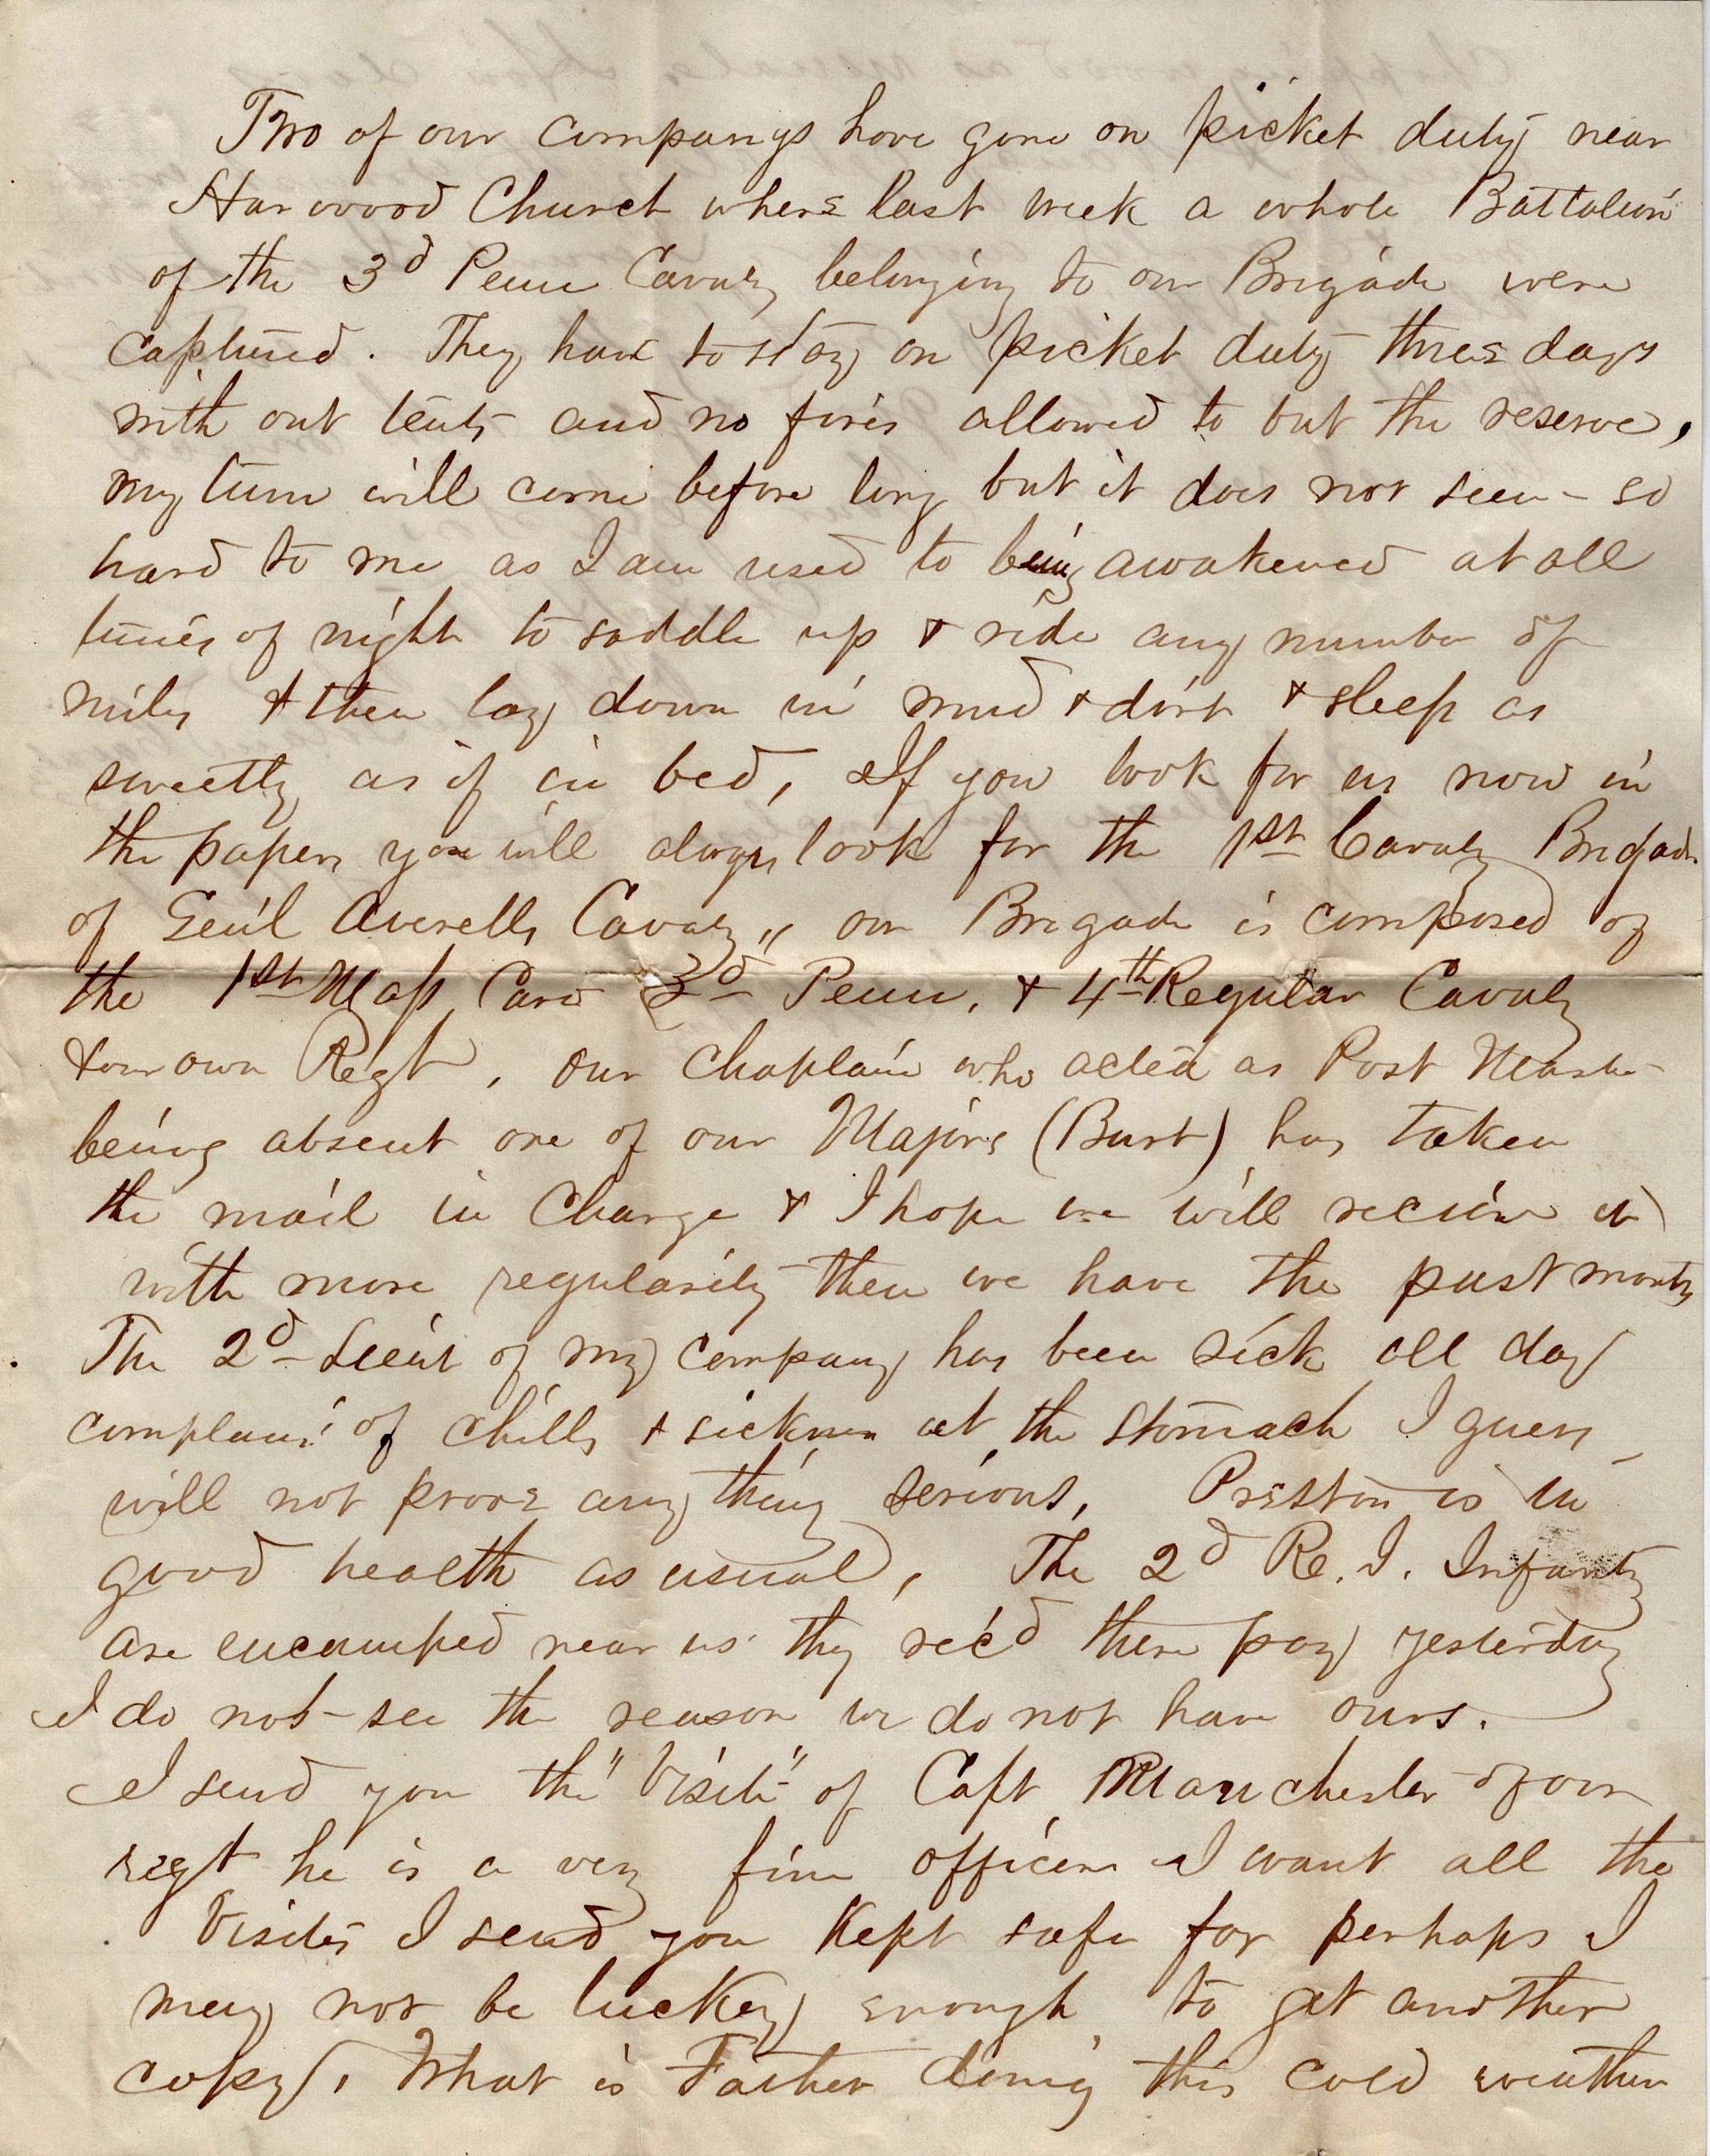 Two of our companys have gone on picket duty near
Harwood Church where last week a whole Battalion
of the 3d Penn Cavalry belonging to our Brigade were
captured. They have to stay on picket duty three days
with out tents and no fires allowed to but the reserve,
my turn will come before long but it does not seem so
hard to me as I am used to being awakened at all
times of night to saddle up & ride any number of
miles & then lay down in mud & dirt & sleep as
sweetly as if in bed, If you look for us now in
the papers you will always look for the 1st Cavalry Brigade
of Gen'l Averells Cavalry" our Brigade is composed of
the 1st Mass Cav 3d Penn, & 4th Regular Cavalry
& our own Regt, our Chaplain who acted as Post Master
being absent one of our Majors (Burt) has taken
the mail in Charge & I hope we will recieve it
with more regularity then we have the past month
The 2d Lieut of my company has been sick all day
complains of chills & sickness at the stomach I guess
will not prove any thing serious, Preston is in
good health as usual, The 2d R. I. Infantry
are encamped near us they rec'd there pay yesterday
I do not see the reason we do not have ours.
I send you the "Visite" of Capt Manchester of our
regt he is a very fine officer I want all the
Visites I send you Kept safe for perhaps I
may not be luckey enough to get another
copy, What is Father doing this cold weather